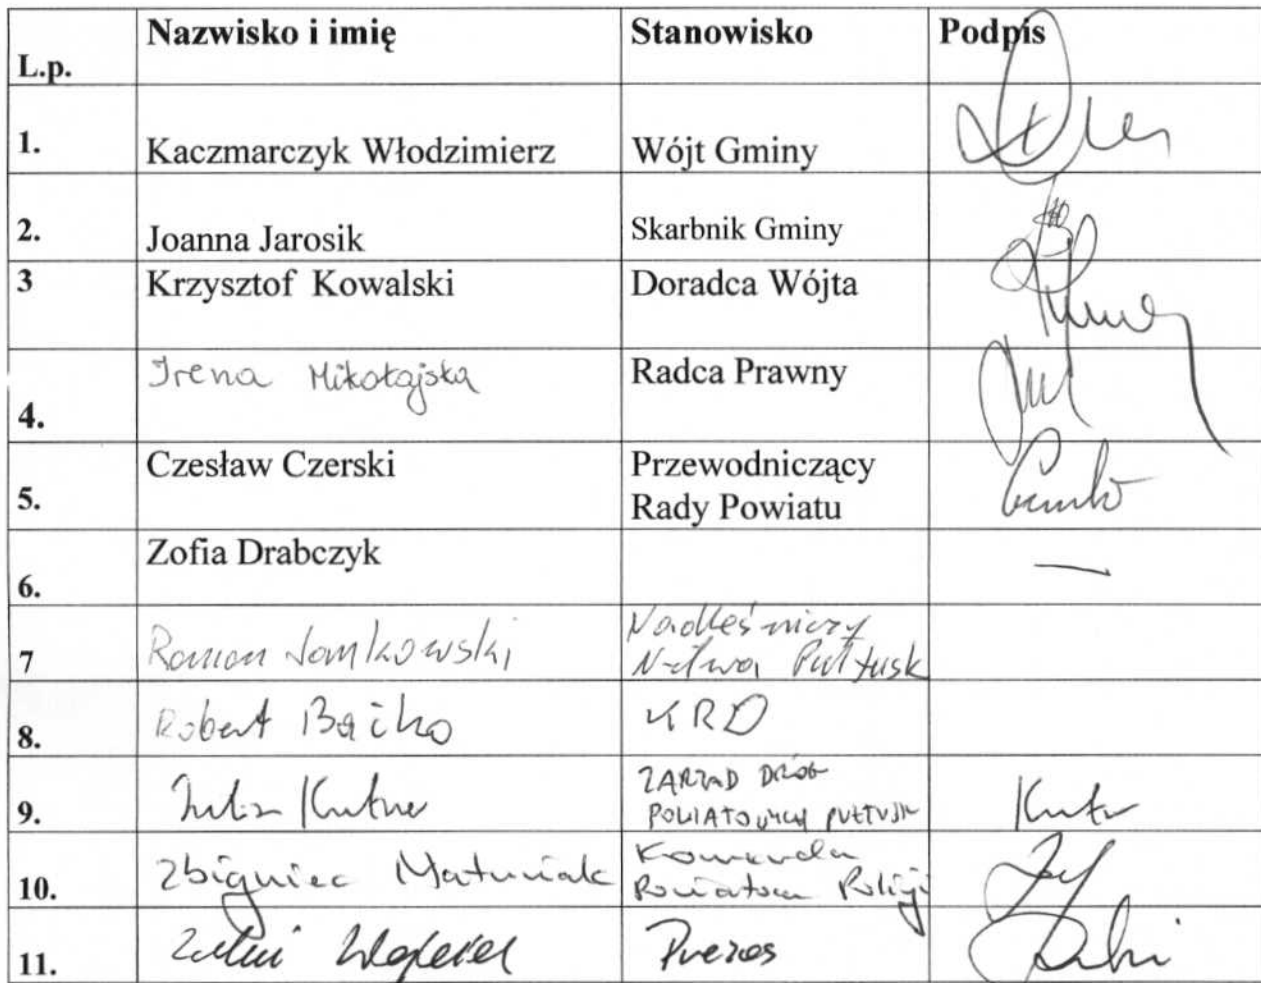 L.p. Nazwisko i imię Stanowisko Podpis
1. Kaczmarczyk Włodzimierz Wójt Gminy
2. Joanna Jarosik Skarbnik Gminy
3 Krzysztof Kowalski Doradca Wójta
4. Irena Mikołajska Radca Prawny
5. Czesław Czerski Przewodniczący
Rady Powiatu
6. Zofia Drabczyk —
7 Roman Nadleśniczy
Pułtusk
8. Robert KRD
9. Kutner ZARZĄD DRÓG
POWIATOWYCH PUŁTUSK
10. Zbigniew Komenda
Powiatowa Policji
11. Prezes